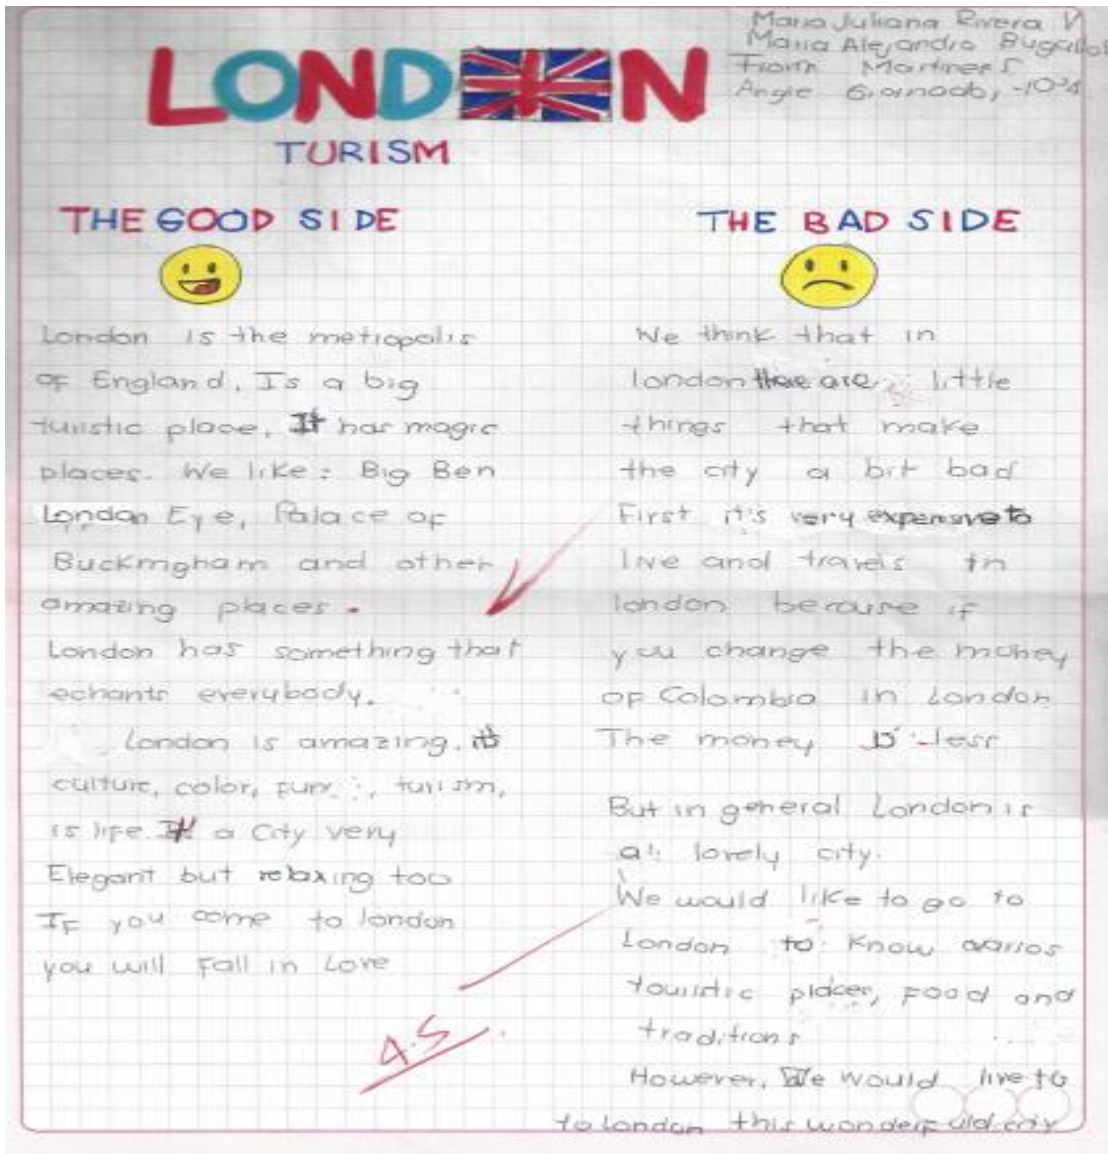 Maria Juliana Rivera V
Maria Alejandra
Martinez S
Angie 10-4
LONDON
TURISM
THE GOOD SIDE
London is the metropolis
of England, Is a big
turistic place, It has magic
places. We like: Big Ben
London Eye, Palace of
Buckingham and other
amazing places.
London has something that
echants everybody.
London is amazing, it's
culture, color, turism,
is life. a City very
Elegant but relaxing too
If you come to london
you will Fall in Love
THE BAD SIDE
We think that in
london there are little
things that make
the city a bit bad
First it's very expensive to
live and travels in
london because if
you change the money
of Colombia in London
The money is less
But in general London is
a lovely city.
We would like to go to
London to know
touristic places, Food and
traditions
However, We would live to
to london this city
4.5